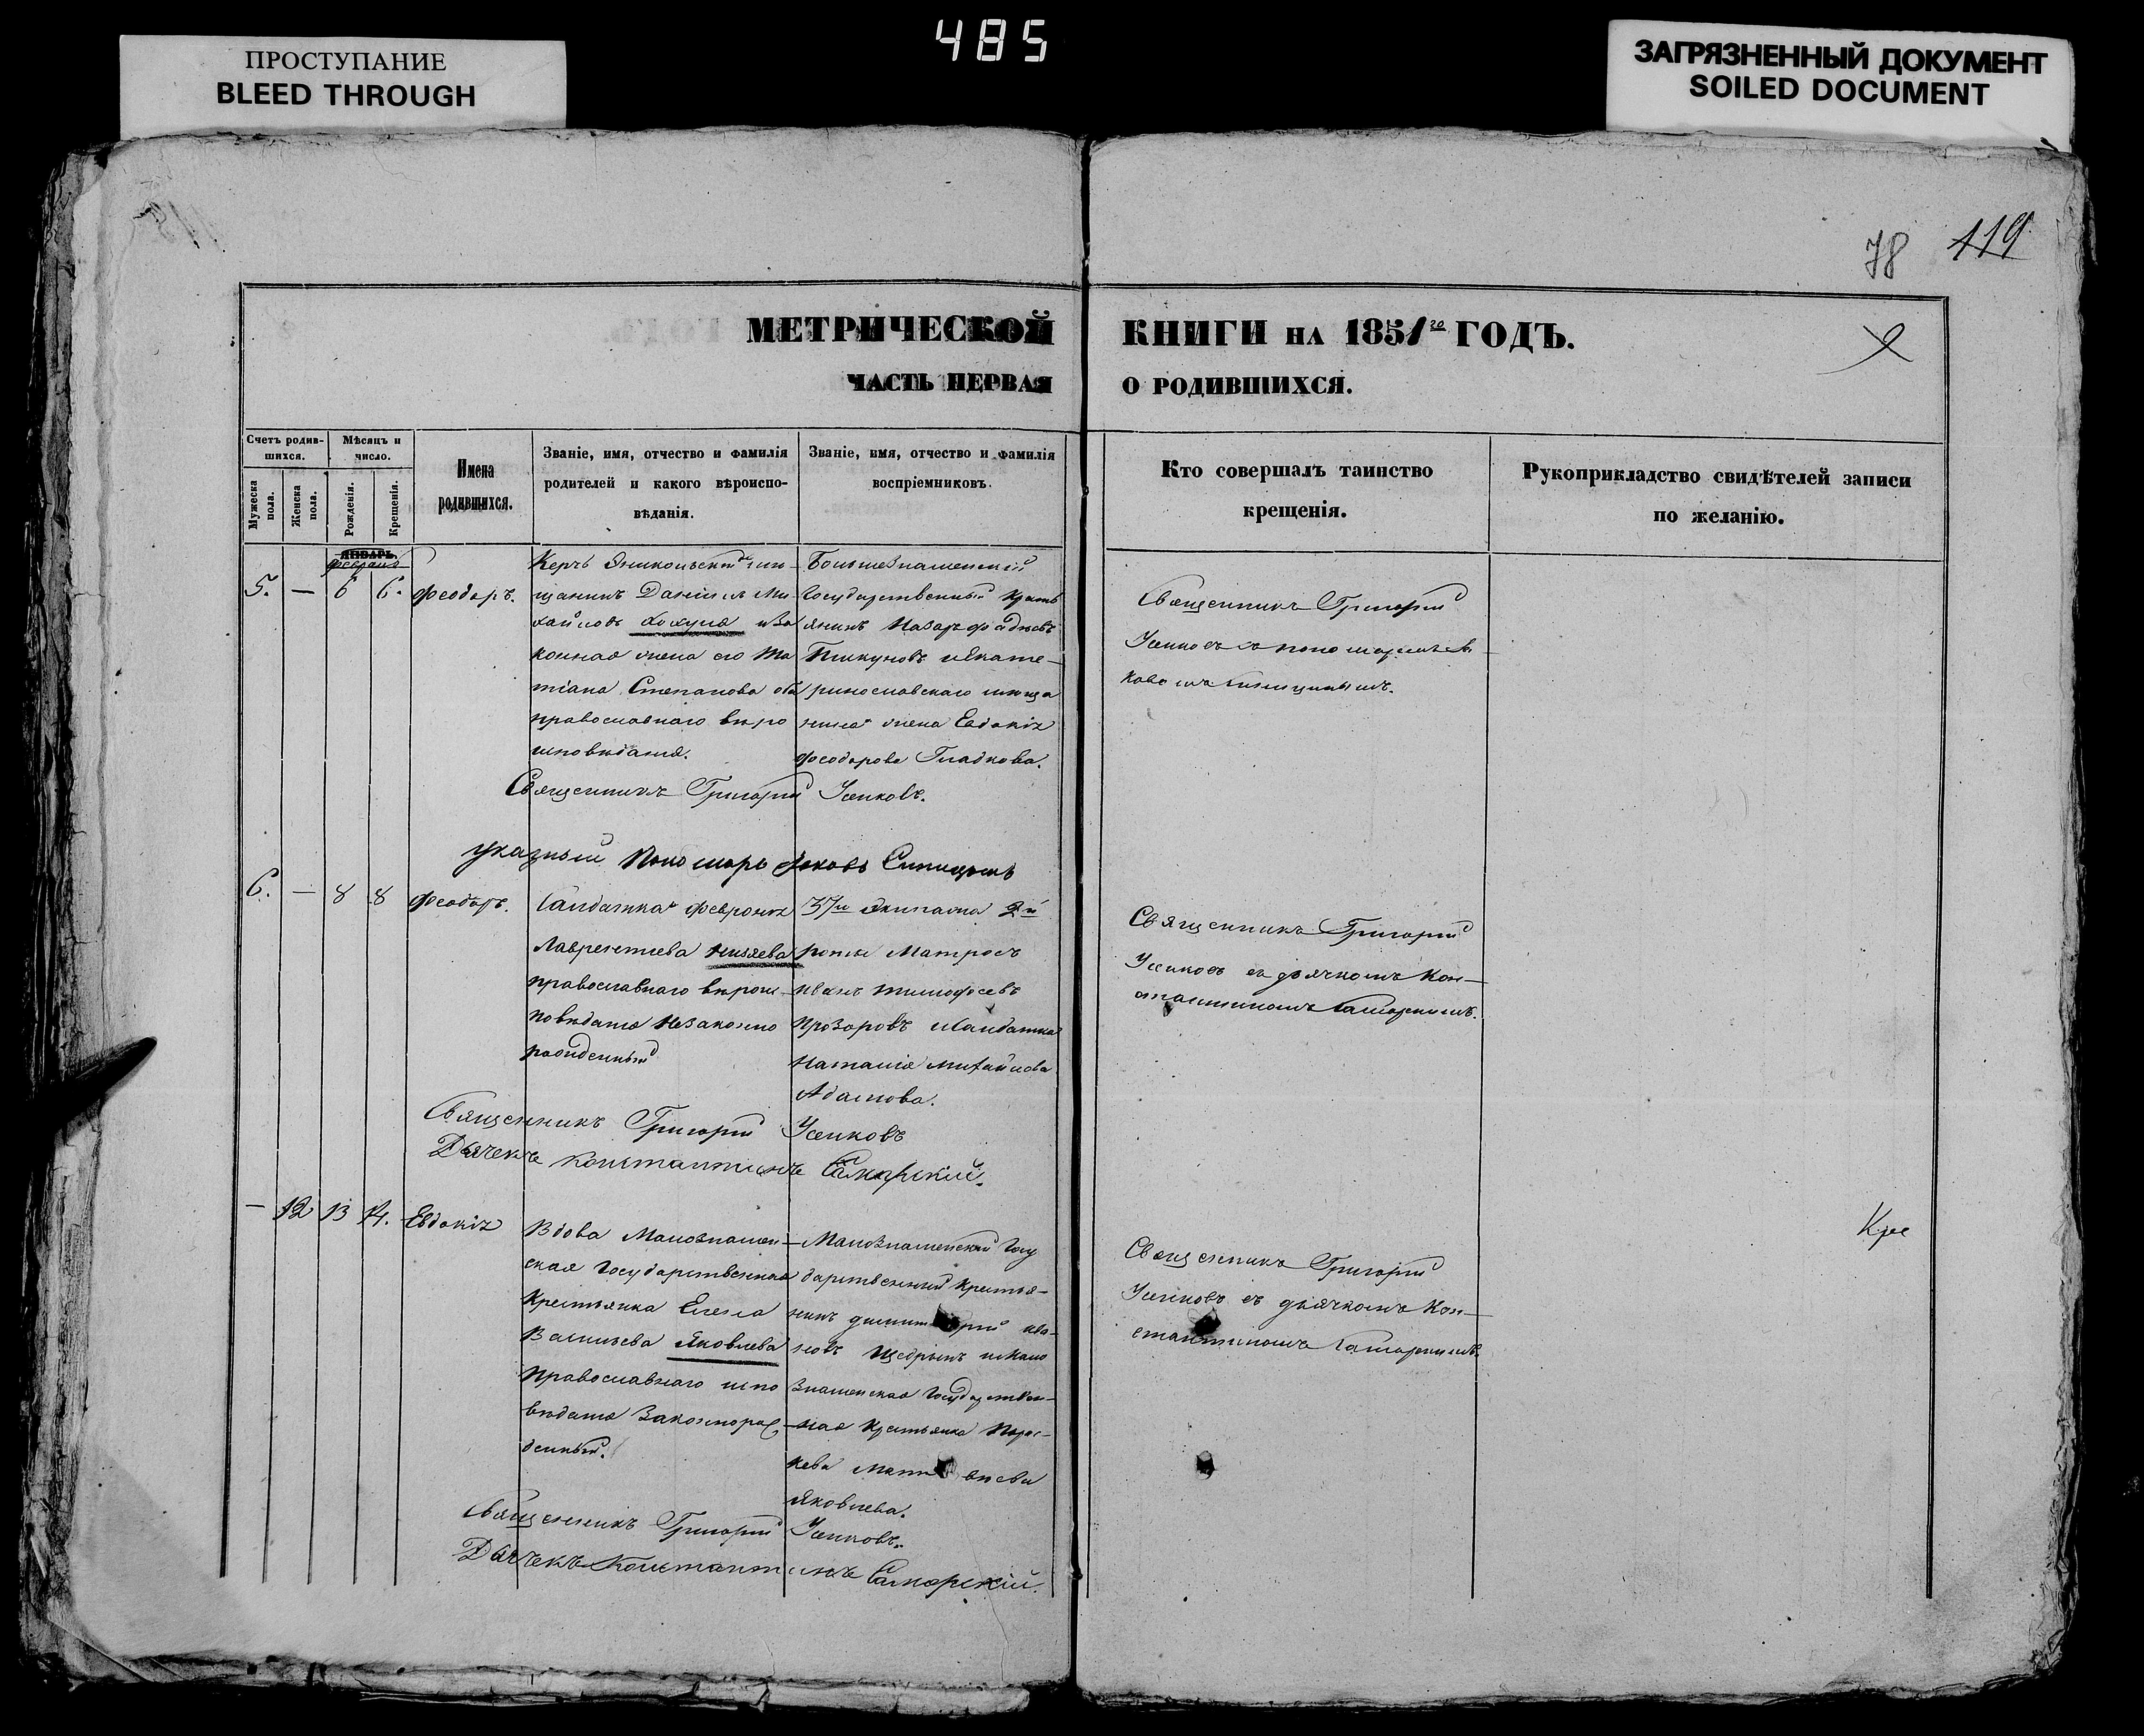 485
ПРОСТУПАНИЕ
BLEED THROUGH
ЗАГРЯЗНЕННЫЙ ДОКУМЕНТ
SOILED DOCUMENT
78 119
МЕТРИЧЕСКОЙ КНИГИ НА 1851го ГОДЪ.
ЧАСТЬ ПЕРВАЯ О РОДИВШИХСЯ.
Счетъ родив-
шихся.
Мужеска пола.
Женска пола.
Мѣсяцъ и
число.
Рожденія.
Крещенія.
Имена
родившихся.
Званіе, имя, отчество и фамилія
родителей и какого вѣроиспо-
вѣданія.
Званіе, имя, отчество и фамилія
воспріемниковъ.
Кто совершалъ таинство
крещенія.
Рукоприкладство свидѣтелей записи
по желанію.
ЯНВАРЬ.
февраля
5. — 6 6. Феодоръ.
щанинъ Даніилъ Ми-
хайловъ и за
конная жена его Та
тіана Степанова оба
православнаго веро
исповѣданія.
Большезнаменскій
государственный крест
янинъ Назаръ
Пикуновъ и Екате-
ринославскаго
жена Евдокія
Феодорова Гладкова.
Священникъ Григорій
Усиковъ съ пономаремъ Я
ковомъ Синицынымъ.
Священникъ Григорій Усиковъ.
указный Пономарь Яковъ Синицынъ
6. — 8 8 Феодоръ.
Солдатка Февронія
Лаврентіева
православнаго вѣроис
повѣданія незаконно
рожденный
37го Экипажа 2й
роты Матросъ
Иванъ Тимофеевъ
Прозоровъ и Солдатка
Наталія Михайлова
Адамова.
Священникъ Григорій
Усиковъ съ дьячкомъ Кон-
стантиномъ Самарскимъ.
Священникъ Григорій Усиковъ
Дьячекъ Константинъ Самарскій.
— 12 13 14. Евдокія
Вдова Малознамен-
ская Государственная
Крестьянка Елена
Васильева Яковлева
Православнаго испо
вѣданія Законнорож
денный.
Малознаменскій Госу
дарственный Крестья-
нинъ Димитрій Ива-
новъ Щедринъ и Мало
Знаменская Государствен-
ная Крестьянка Парас-
кева Матвѣева
Яковлева.
Священникъ Григорій
Усиковъ съ дьячкомъ Кон-
стантиномъ Самарскимъ.
Священникъ Григорій Усиковъ.
Дьячекъ Константинъ Самарскій.